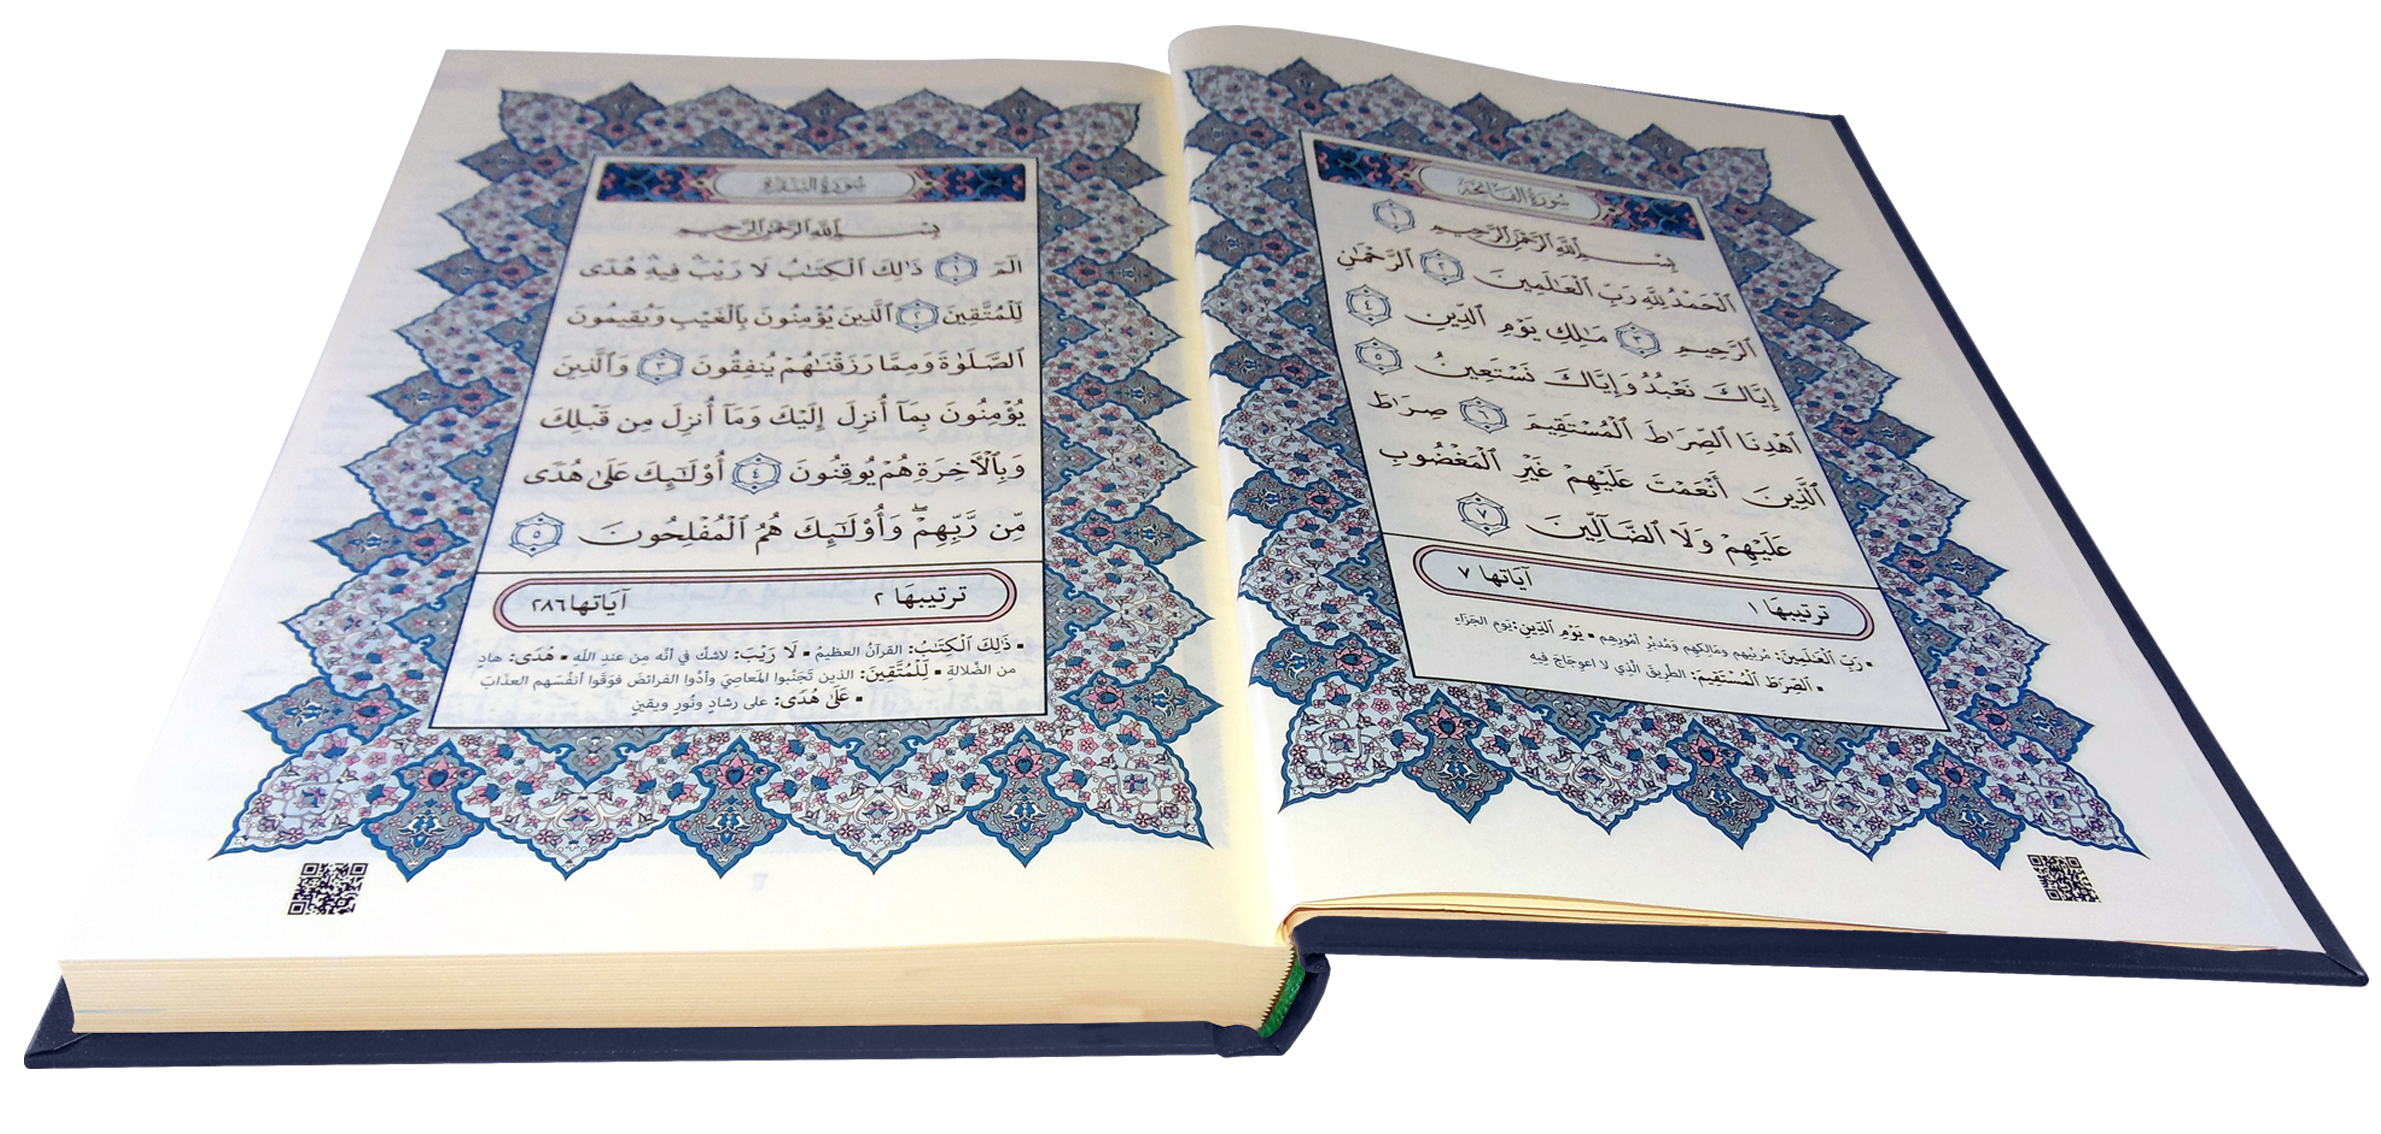 سُورَةُ الفَاتِحَةِ
بِسْمِ ٱللَّهِ ٱلرَّحْمَٰنِ ٱلرَّحِيمِ ١
ٱلْحَمْدُ لِلَّهِ رَبِّ ٱلْعَٰلَمِينَ ٢ ٱلرَّحْمَٰنِ
ٱلرَّحِيمِ ٣ مَٰلِكِ يَوْمِ ٱلدِّينِ ٤
إِيَّاكَ نَعْبُدُ وَإِيَّاكَ نَسْتَعِينُ ٥
ٱهْدِنَا ٱلصِّرَٰطَ ٱلْمُسْتَقِيمَ ٦ صِرَٰطَ
ٱلَّذِينَ أَنْعَمْتَ عَلَيْهِمْ غَيْرِ ٱلْمَغْضُوبِ
عَلَيْهِمْ وَلَا ٱلضَّآلِّينَ ٧
ترتيبهَا ١ آيَاتها ٧
▪ رَبِّ ٱلْعَٰلَمِينَ: مُربِّيهم ومَالِكِهم ومُدبِّرِ أمُورِهِم ▪ يَوْمِ ٱلدِّينِ: يَومِ الجَزَاءِ
▪ ٱلصِّرَٰطَ ٱلْمُسْتَقِيمَ: الطَّرِيقَ الَّذِي لا اعوِجَاجَ فِيهِ
سُورَةُ البَقَرَةِ
بِسْمِ ٱللَّهِ ٱلرَّحْمَٰنِ ٱلرَّحِيمِ
الٓمٓ ١ ذَٰلِكَ ٱلْكِتَٰبُ لَا رَيْبَۛ فِيهِۛ هُدًى
لِّلْمُتَّقِينَ ٢ ٱلَّذِينَ يُؤْمِنُونَ بِٱلْغَيْبِ وَيُقِيمُونَ
ٱلصَّلَوٰةَ وَمِمَّا رَزَقْنَٰهُمْ يُنفِقُونَ ٣ وَٱلَّذِينَ
يُؤْمِنُونَ بِمَآ أُنزِلَ إِلَيْكَ وَمَآ أُنزِلَ مِن قَبْلِكَ
وَبِٱلْأَخِرَةِ هُمْ يُوقِنُونَ ٤ أُوْلَٰٓئِكَ عَلَىٰ هُدًى
مِّن رَّبِّهِمْۖ وَأُوْلَٰٓئِكَ هُمُ ٱلْمُفْلِحُونَ ٥
ترتيبهَا ٢ آيَاتها ٢٨٦
▪ ذَٰلِكَ ٱلْكِتَٰبُ: القرآنُ العظيمُ ▪ لَا رَيْبَ: لاشكَّ في أنَّه مِن عندِ اللهِ ▪ هُدًى: هادٍ
من الضَّلالةِ ▪ لِّلْمُتَّقِينَ: الذين تَجَنَّبوا المَعاصِيَ وأدَّوا الفرائضَ فوَقَوا أنفُسَهم العذَابَ
▪ عَلَىٰ هُدًى: على رشادٍ ونُورٍ ويقينٍ